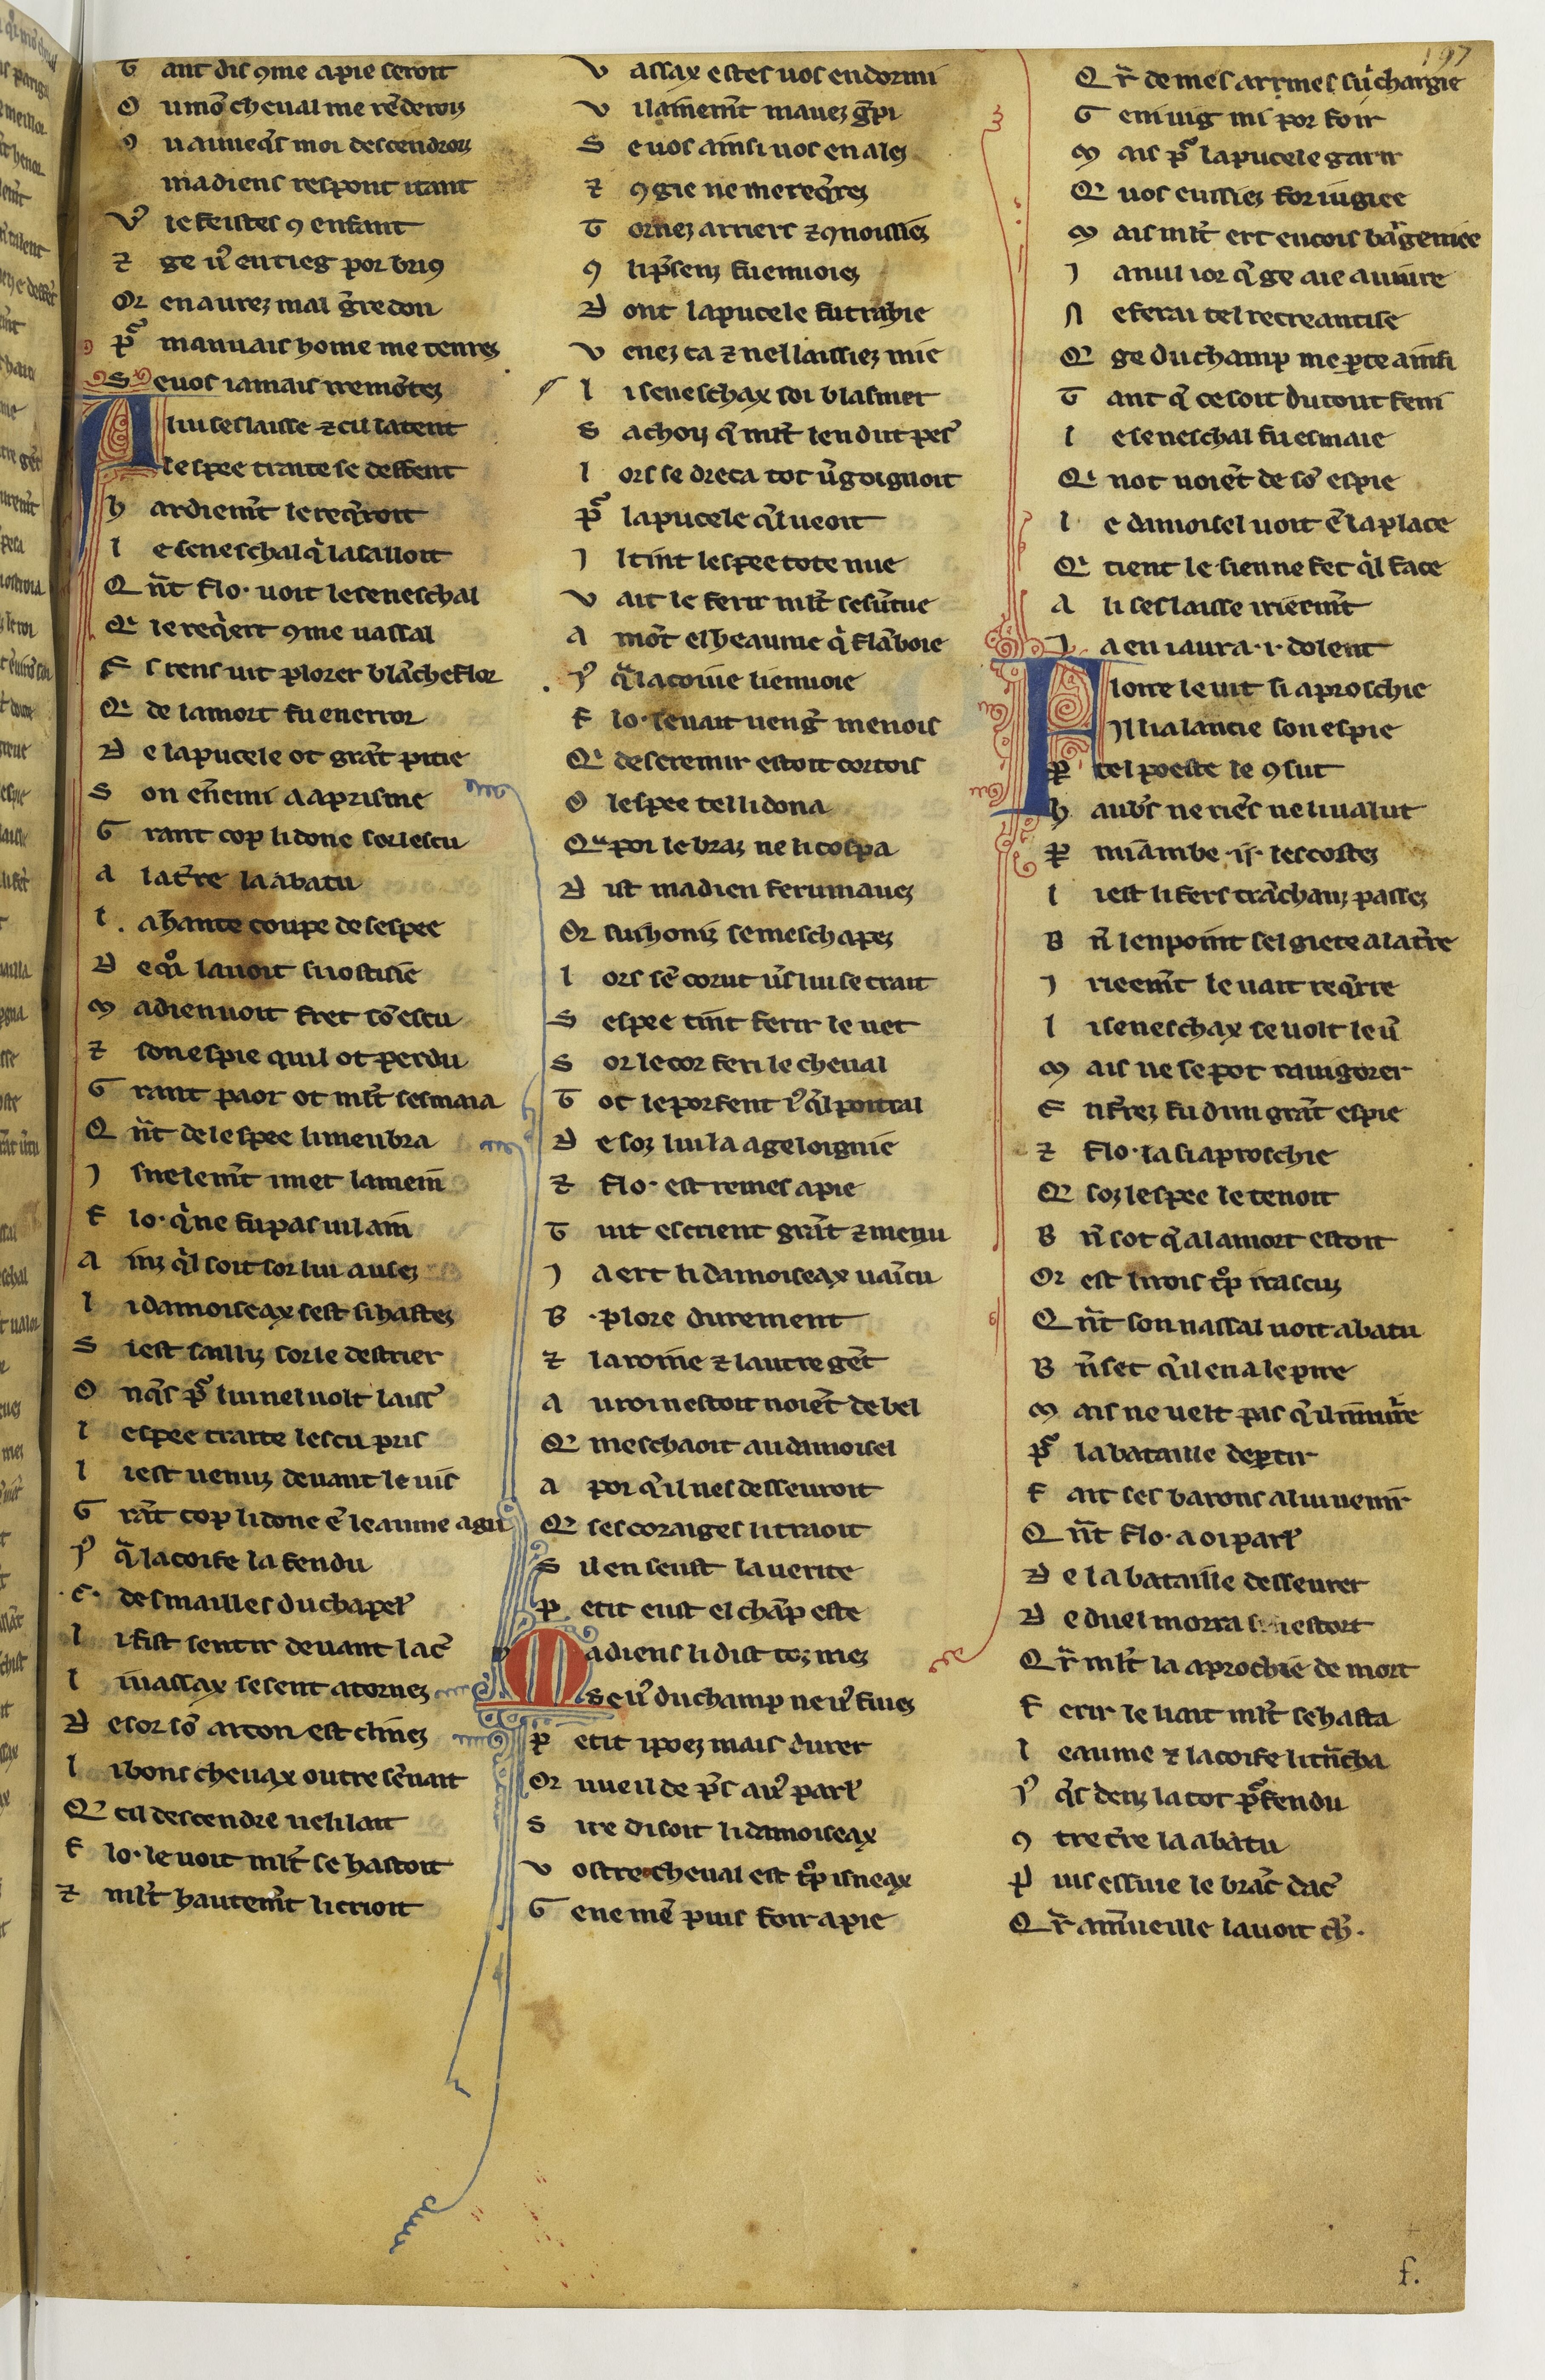 T ant dis 9me apie seroit
O u mō cheual me rēderois
O u auueq̄s moi descendrois
madiens respont itant
V9 le feistes 9 enfant
⁊ ge ur̄ en tieg por bric9
Or en aurez mal gr̄edon
P9 mauuais home me tenres
S e uos iamais i remōtez
A lui seslaisse ⁊ cil latent
lespee traite se deffent
h ardiem̄t le req̄roit
l e seneschal qi lasalloit
Q ñt flo· uoit le seneschal
Q1 le reqiert 9me uassal
E strens uit plorer blācheflor
Q1 de lamort fu en error
D e la pucele ot grāt pitie
S on eñemi a aprisme
G rant cop li done sor lescu
A lat̄re la abatu
l a hante coupe de lespee
D e
M adien uoit fret sō escu
⁊ son espie quil ot perdu
G rant paor ot ml̄t sesmaia
Q ñt de lespee li menbra
I snelem̄t i met la mein
F lo· qi ne fu pas uilain
A inz qil soit sor lui alez
l i damoiseax sest si hastez
S iest sailliz sor le destrier
O nq̄s p9 lui nel uolt laiss9
l espee traite lescu pris
l i est uenuz deuant le uis
G rāt cop li done ē leaume agu
I9 qa la coife la fendu
·C· des mailles du chapel9
l i fist sentir deuant lac̄
l i uassax se sent atornez
D esor sō arcon est clinez
l i bons cheuax outre sēuait
Q1 cil descendre ne li lait
F lo· le uoit ml̄t se hastoit
⁊ ml̄t hautem̄t li crioit
V assax estes uos endormi
V ilainem̄t mauez gr̄pi
S e uos ainsi uos en alez
⁊ 9gie ne me req̄res
T ornez arriers ⁊ 9noissiés
9 li p̄senz fu enuoiez
D ont la pucele fu trahie
V enez ca ⁊ nel laissiez mie
l i seneschax soi blasmer
S achoiz q̄ ml̄t len dut pes9
l ors se dreca tot ūgoignoit
P9 la pucele qil ueoit
I l tint lespee tote nue
V ait le ferir ml̄t sesūtue
A mōt el heaume qi flāboie
I9 qa la coiue lienuoie
F lo· seuait uenḡ menois
Q1 de scremir estoit cortois
O lespee tel li dona
Q'a poi le braz ne li cospa
D ist madien feru mauez
Or sui honiz se meschapez
l ors sē corut ūs lui se trait
S espee tint ferir le uet
S or le cor feri le cheual
T ot le porfent i9 qal poitral
D esoz lui la ageloignie
⁊ flo· est remes apie
T uit escrient grāt ⁊ menu
I a ert li damoiseax uaīcu
B ·plore durement
⁊ la roine ⁊ lautre gēt
A u roi nestoit noiēt de bel
Q1 meschaoit au damoisel
A por qil nes desseuroit
Q1 ses coraiges li traoit
S il en seust la uerite
P etit eust el chāp este
M adiens li dist toz mez
S e ur̄ du champ ne ur̄ fuiez
P etit i poez mais durer
Or uueil de p̄s a u9 parl9
S ire disoit li damoiseax
V ostre cheual est tp̄ isneax
G ene mē puis foir apie
Q r̄ de mes armes sui chargie
G en i uig mi por foir
M ais p9 la pucele garir
Q1 uos eussiez foriugiee
M ais ml̄t ert encois bārgeniee
I a nul ior q̄ ge aie a uiure
N e ferai tel recreantise
Q1 ge du champ me pte ainsi
T ant q̄ ce soit du tout feni
l e seneschal fu esmaie
Q1 not noiēt de sō espie
l e damoisel uoit ē la place
Q1 tient le sienne fet qil face
A li seslaisse irieem̄t
I a en i aura ·i· dolent
F loire le uit si aproschie
Il li a lancie son espie
P tel poeste le 9sut
h aub̄s ne riēs ne li ualut
P mi āmbe ·ii· les costez
l i est li fers trāchanz passez
B ñ lenpoint sel giete a lat̄re
I rieem̄t le uait req̄rre
l i seneschax se uolt leū
M ais ne se pot rauigorer
E nferrez fu dun grāt espie
⁊ flo· la si aproschie
Q1 soz lespee le tenoit
B ñ sot q̄ a la mort estoit
Or est li rois tp̄ irascuz
Q ñt son uassal uoit abatu
B ñ set qil en a le pire
M ais ne uelt pas qil muire
P9 la bataille deptir
F ait ses barons a lui uenir
Q ñt flo· a oi parl9
D e la bataille desseurer
D e duel morra estort
Q r̄ ml̄t la aprochie de mort
F erir le uait ml̄t sehasta
l eaume ⁊ la coife li trn̄cha
I9 qs denz la tot p9fendu
9 tre tr̄e la abatu
P uis essuie le brāc dac̄
Q r̄ a m̄ueille lauoit ch̄·
f.
197